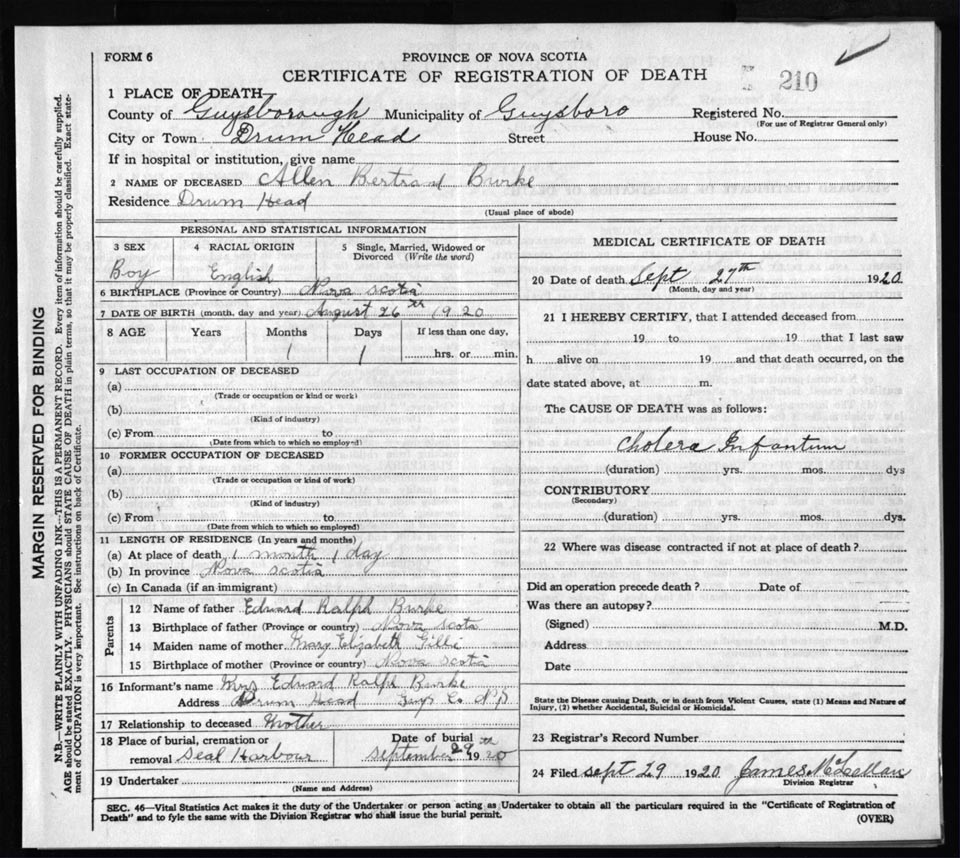 FORM 6
PROVINCE OF NOVA SCOTIA
CERTIFICATE OF REGISTRATION OF DEATH
210
1 PLACE OF DEATH
County of Guysborough Municipality of Guysboro Registered No.
(For use of Registrar General only)
City or Town Drum Head Street House No.
If in hospital or institution, give name
2 NAME OF DECEASED Allen Bertrand Burke
Residence Drum Head
(Usual place of abode)
PERSONAL AND STATISTICAL INFORMATION
3 SEX 4 RACIAL ORIGIN 5 Single, Married, Widowed or Divorced (Write the word)
Boy English
6 BIRTHPLACE (Province or Country) Nova Scotia
7 DATE OF BIRTH (month, day and year) August 26 1920
8 AGE Years Months Days If less than one day,
1 1 hrs. or min.
9 LAST OCCUPATION OF DECEASED
(a)
(Trade or occupation or kind or work)
(b)
(Kind of industry)
(c) From to
(Date from which to which so employed)
10 FORMER OCCUPATION OF DECEASED
(a)
(Trade or occupation or kind of work)
(b)
(Kind of industry)
(c) From to
(Date from which to which so employed)
11 LENGTH OF RESIDENCE (In years and months)
(a) At place of death 1 month 1 day
(b) In province Nova Scotia
(c) In Canada (if an immigrant)
Parents
12 Name of father Edward Ralph Burke
13 Birthplace of father (Province or country) Nova Scota
14 Maiden name of mother Mary Elizabeth Gillie
15 Birthplace of mother (Province or country) Nova Scotia
16 Informant's name Mrs Edward Ralph Burke
Address Drum Head Guys Co N S
17 Relationship to deceased Mother
18 Place of burial, cremation or Date of burial
removal Seal Harbour September 29th 1920
19 Undertaker
(Name and Address)
MEDICAL CERTIFICATE OF DEATH
20 Date of death Sept 27th 1920
(Month, day and year)
21 I HEREBY CERTIFY, that I attended deceased from
19 to 19 that I last saw
h alive on 19 and that death occurred, on the
date stated above, at m.
The CAUSE OF DEATH was as follows:
Cholera Infantum
(duration) yrs. mos. dys
CONTRIBUTORY
(Secondary)
(duration) yrs. mos. dys.
22 Where was disease contracted if not at place of death?
Did an operation precede death? Date of
Was there an autopsy?
(Signed) M.D.
Address
Date
State the Disease causing Death, or in death from Violent Causes, state (1) Means and Nature of
Injury, (2) whether Accidental, Suicidal or Homicidal.
23 Registrar's Record Number
24 Filed Sept 29 1920 James McLellan
Division Registrar
SEC. 46—Vital Statistics Act makes it the duty of the Undertaker or person acting as Undertaker to obtain all the particulars required in the "Certificate of Registration of
Death" and to fyle the same with the Division Registrar who shall issue the burial permit.
(OVER)
MARGIN RESERVED FOR BINDING
N.B.—WRITE PLAINLY WITH UNFADING INK—THIS IS A PERMANENT RECORD. Every item of information should be carefully supplied.
AGE should be stated EXACTLY. PHYSICIANS should STATE CAUSE OF DEATH in plain terms, so that it may be properly classified. Exact state-
ment of OCCUPATION is very important. See instructions on back of Certificate.